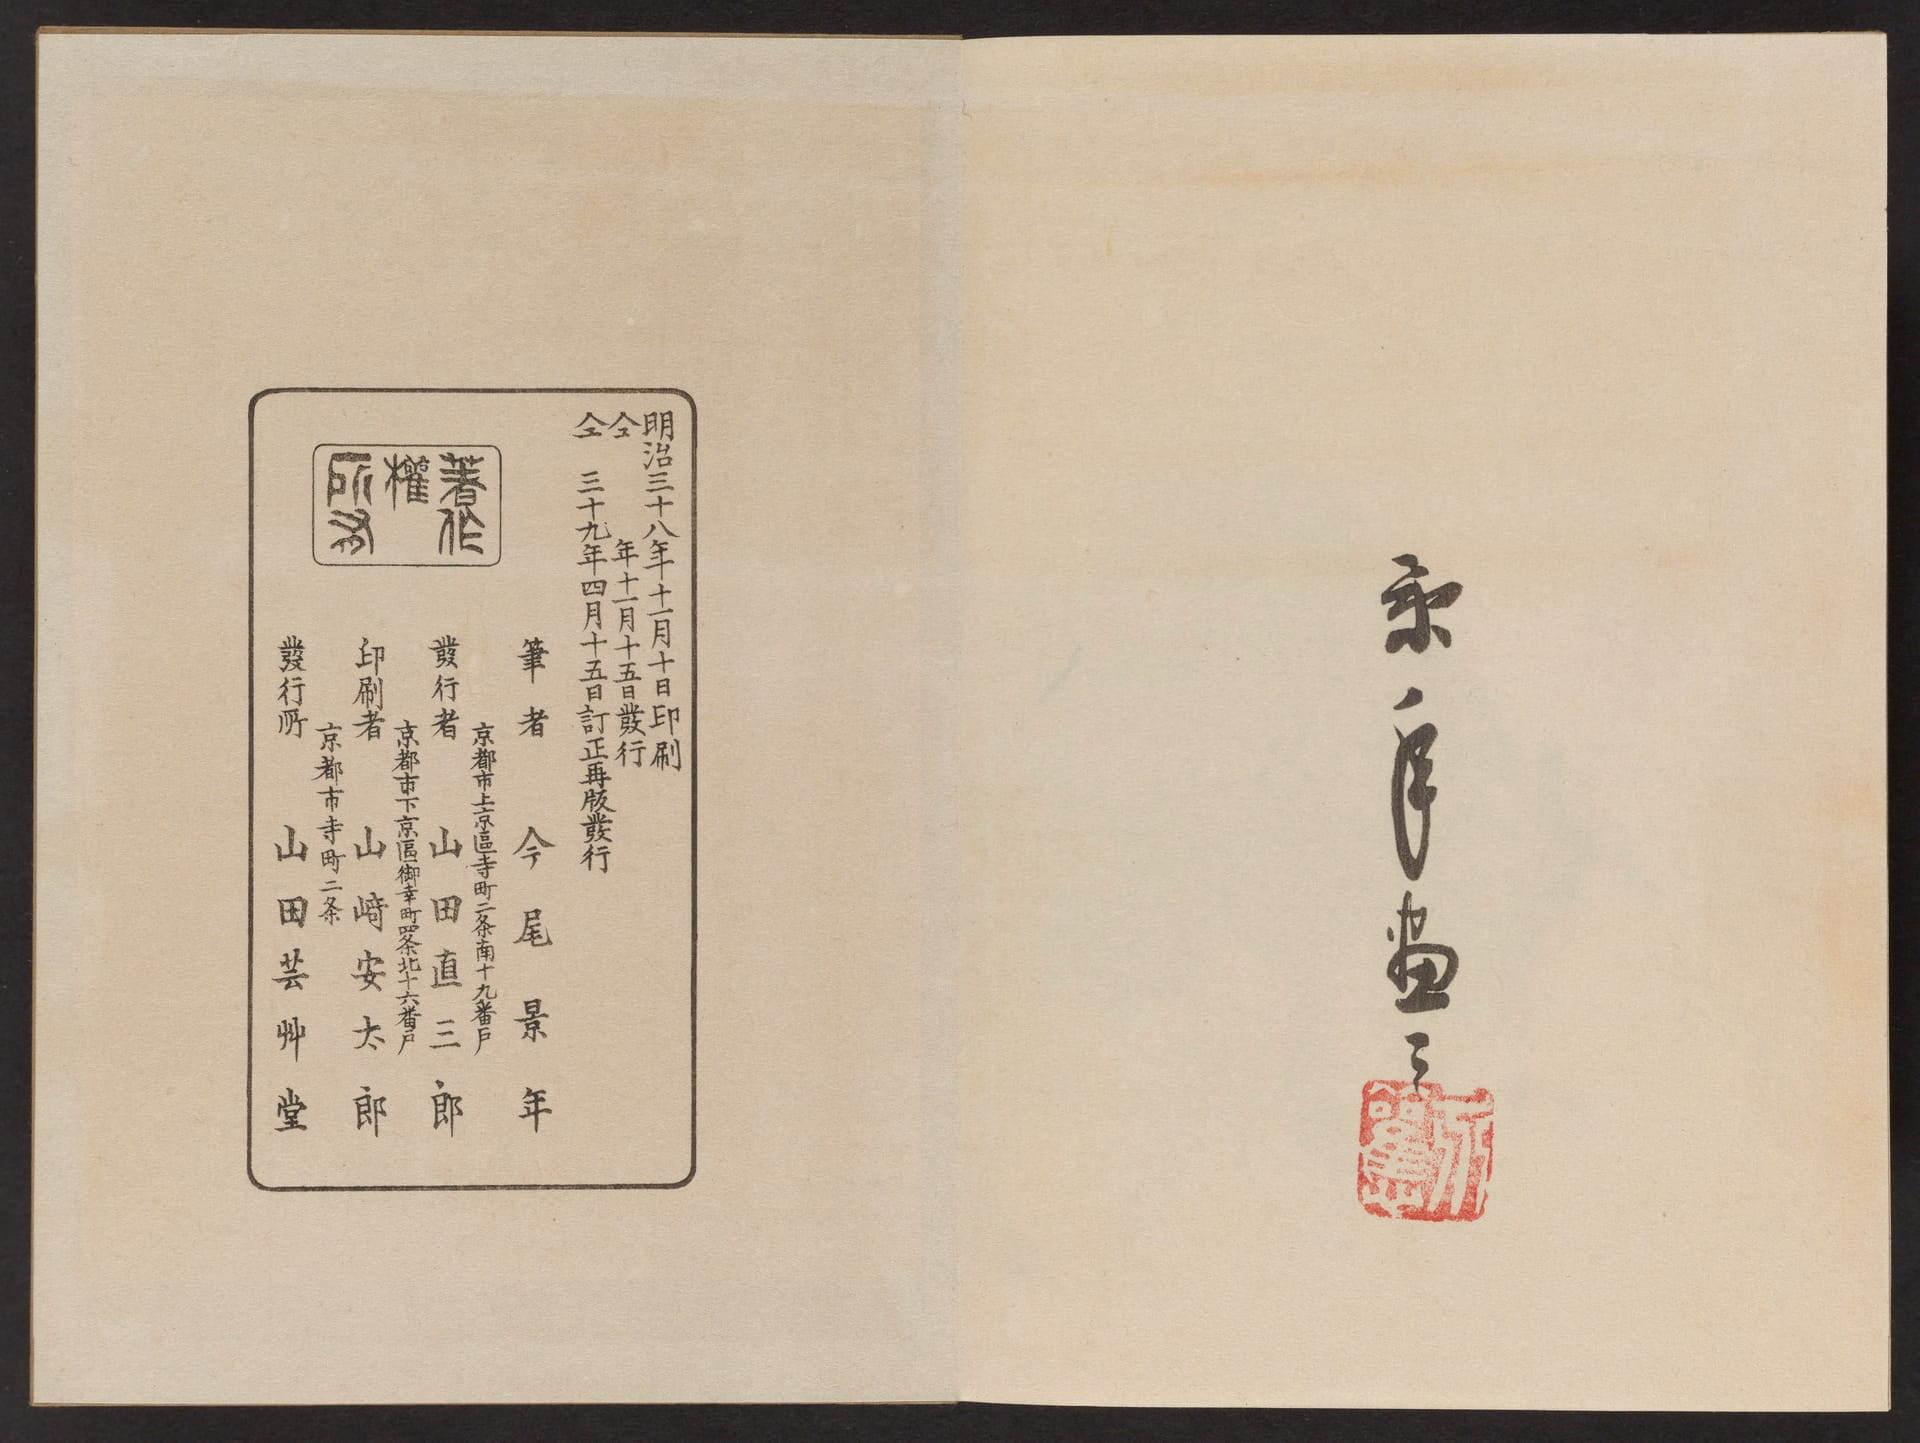 景年画
明治三十八年十一月十日印刷
仝年十一月十五日發行
仝三十九年四月十五日訂正再版發行
著作
權
所有
筆者 今尾景年
京都市上京區寺町二条南十九番戸
發行者 山田直三郎
京都市下京區御幸町四条北十六番戸
印刷者 山﨑安太郎
京都市寺町二条
發行所 山田芸艸堂